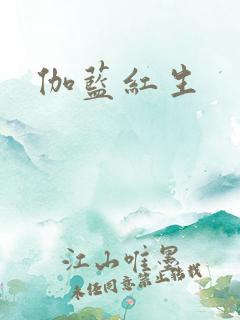 伽藍紅生
江山唯墨
未经同意禁止转载